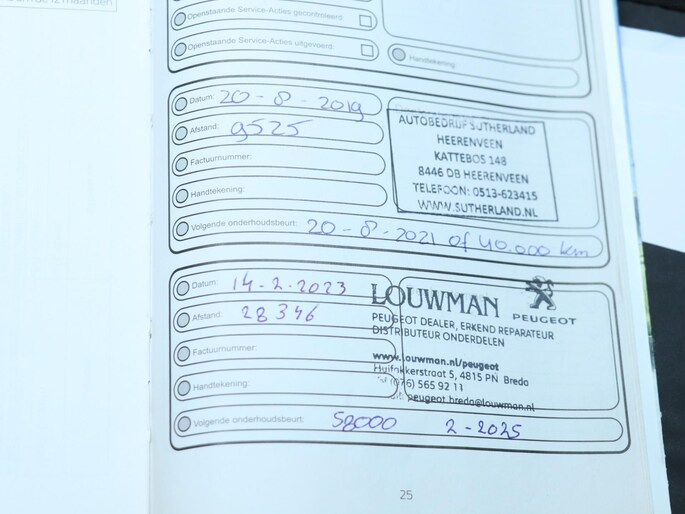 12 maanden
Openstaande Service-Acties gecontroleerd:
Openstaande Service-Acties uitgevoerd:
Handtekening:
Datum: 20-8-2019
Afstand: 9525
Factuurnummer:
Handtekening:
Volgende onderhoudsbeurt: 20-8-2021 of 40.000 km
AUTOBEDRIJF SUTHERLAND
HEERENVEEN
KATTEBOS 148
8446 DB HEERENVEEN
TELEFOON: 0513-623415
WWW.SUTHERLAND.NL
Datum: 14-2-2023
Afstand: 28346
Factuurnummer:
Handtekening:
Volgende onderhoudsbeurt: 58000 2-2025
LOUWMAN PEUGEOT
PEUGEOT DEALER, ERKEND REPARATEUR
DISTRIBUTEUR ONDERDELEN
www.louwman.nl/peugeot
5, 4815 PN Breda
(076) 565 92 11
peugeot.breda@louwman.nl
25